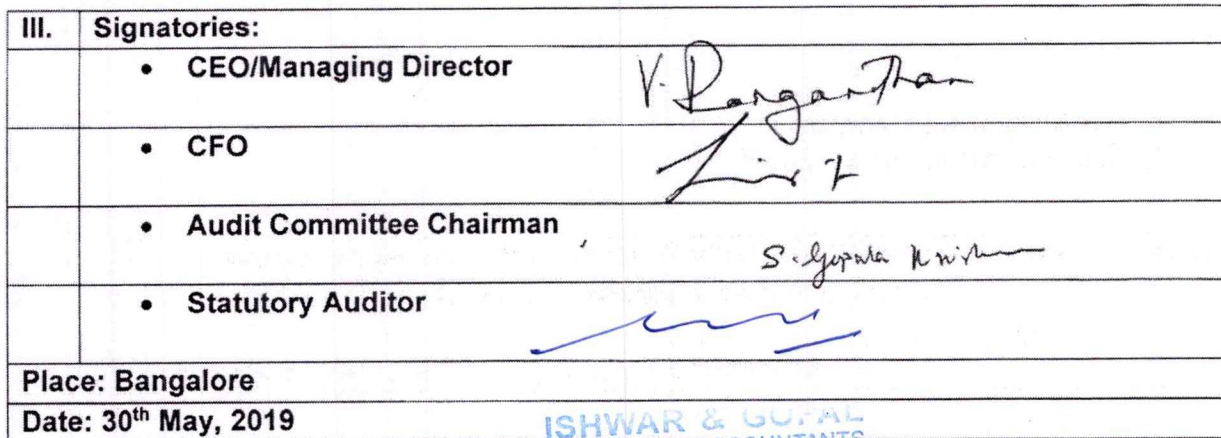 III. Signatories:
• CEO/Managing Director V. Ranganathan
• CFO
• Audit Committee Chairman S. Gopala Krishn
• Statutory Auditor
Place: Bangalore
Date: 30th May, 2019
ISHWAR & GOPAL